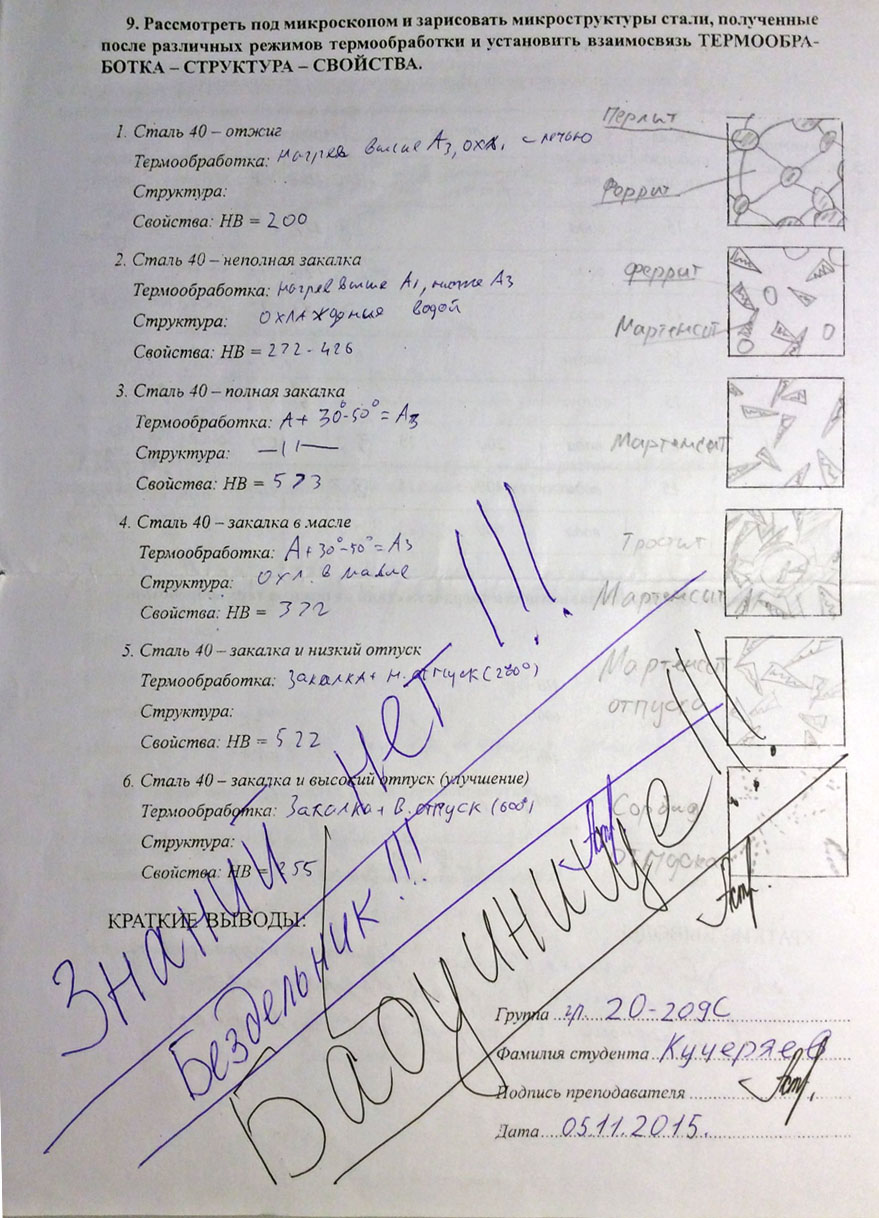 9. Рассмотреть под микроскопом и зарисовать микроструктуры стали, полученные
после различных режимов термообработки и установить взаимосвязь ТЕРМООБРА-
БОТКА – СТРУКТУРА – СВОЙСТВА.
1. Сталь 40 – отжиг
Термообработка: нагрев выше А3, охл. с печью
Структура:
Свойства: НВ = 200
Перлит
Феррит
2. Сталь 40 – неполная закалка
Термообработка: нагрев выше А1, ниже А3
Структура: охлаждение водой
Свойства: НВ = 272-426
феррит
Мартенсит
3. Сталь 40 – полная закалка
Термообработка: А+ 30°-50° = А3
Структура: —11—
Свойства: НВ = 573
Мартенсит
4. Сталь 40 – закалка в масле
Термообработка: А+30°-50°=А3
Структура: Охл. в масле
Свойства: НВ = 372
Тростит
Мартенсит
5. Сталь 40 – закалка и низкий отпуск
Термообработка: Закалка+ н. отпуск (200°)
Структура:
Свойства: НВ = 522
Мартенсит
отпуска
6. Сталь 40 – закалка и высокий отпуск (улучшение)
Термообработка: Закалка+ в. отпуск (600°)
Структура:
Свойства: НВ = 255
Сорбид
отпуска
КРАТКИЕ ВЫВОДЫ:
Знаний нет!!!
Бездельник!!!
Бабуинище!!!
Группа гр. 20-209С
Фамилия студента Кучеряев
Подпись преподавателя
Дата 05.11.2015.